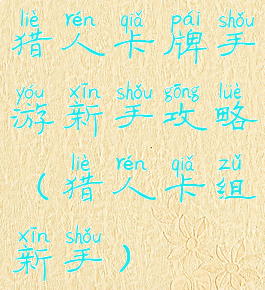 liè rén qiǎ pái shǒu
猎人卡牌手
yóu xīn shǒu gōng luè
游新手攻略
liè rén qiǎ zǔ
（猎人卡组
xīn shǒu
新手）